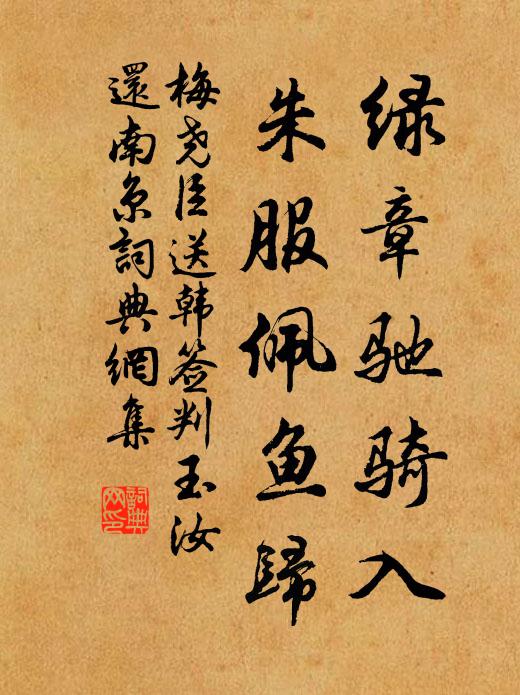 绿章驰骑入
朱服佩鱼歸
梅尧臣送韩签判玉汝
還南京詞典網集
詞典
网印